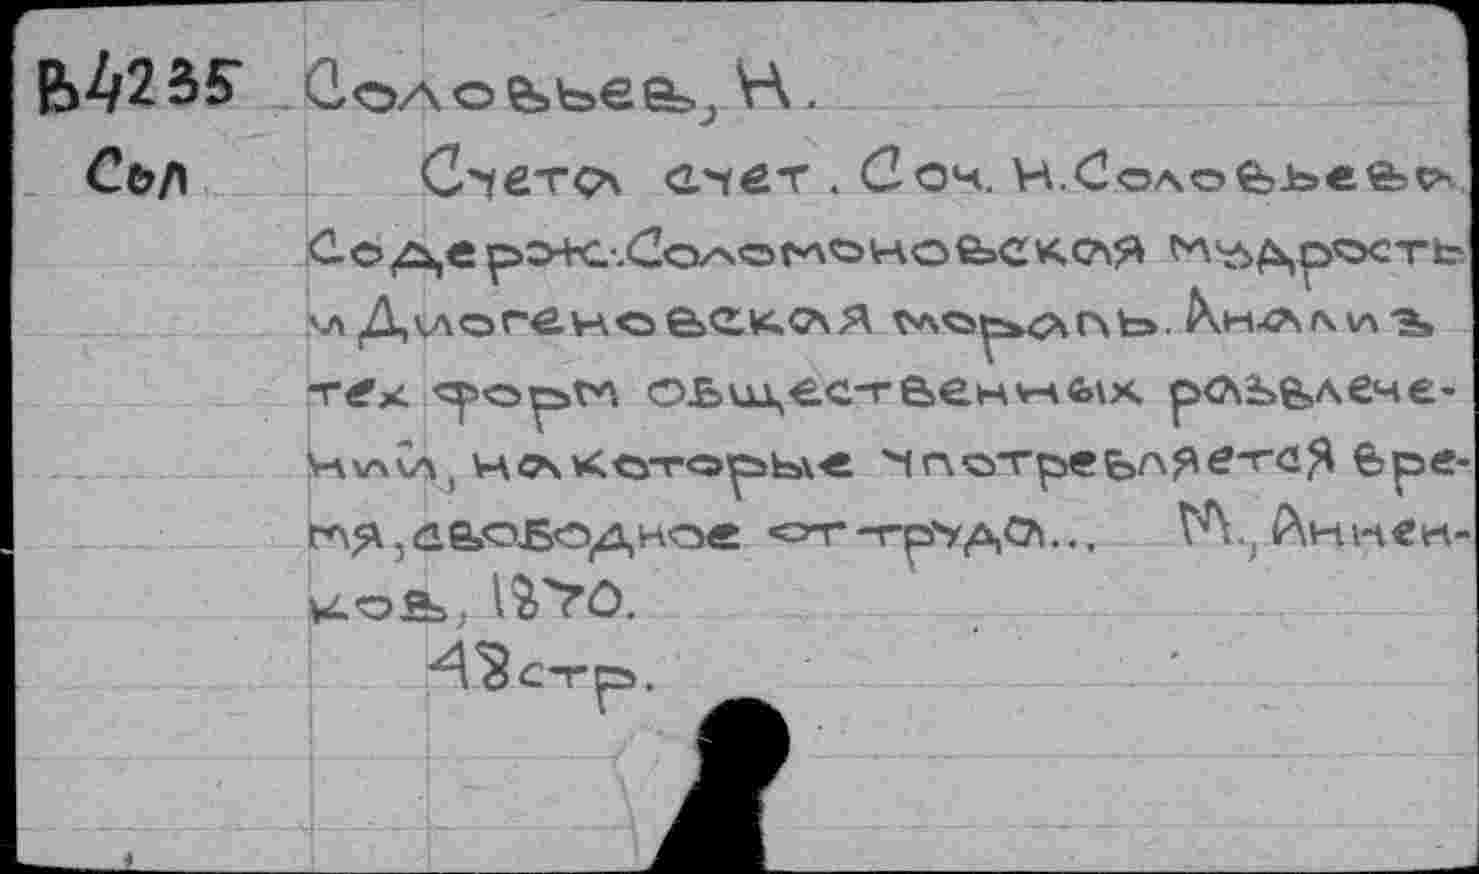 В4235 Соловьев, Н.
Сол Счетъ счет. Соч. Н.Соловьева.
Содерж.:Соломоновская мудрость
и Диогеновская мораль. Анализ
тех форм общественных развлече-
ний, на которые употребляется вре-
мя, свободное от труда... М., Аннен-
ков, 1870.
48стр.